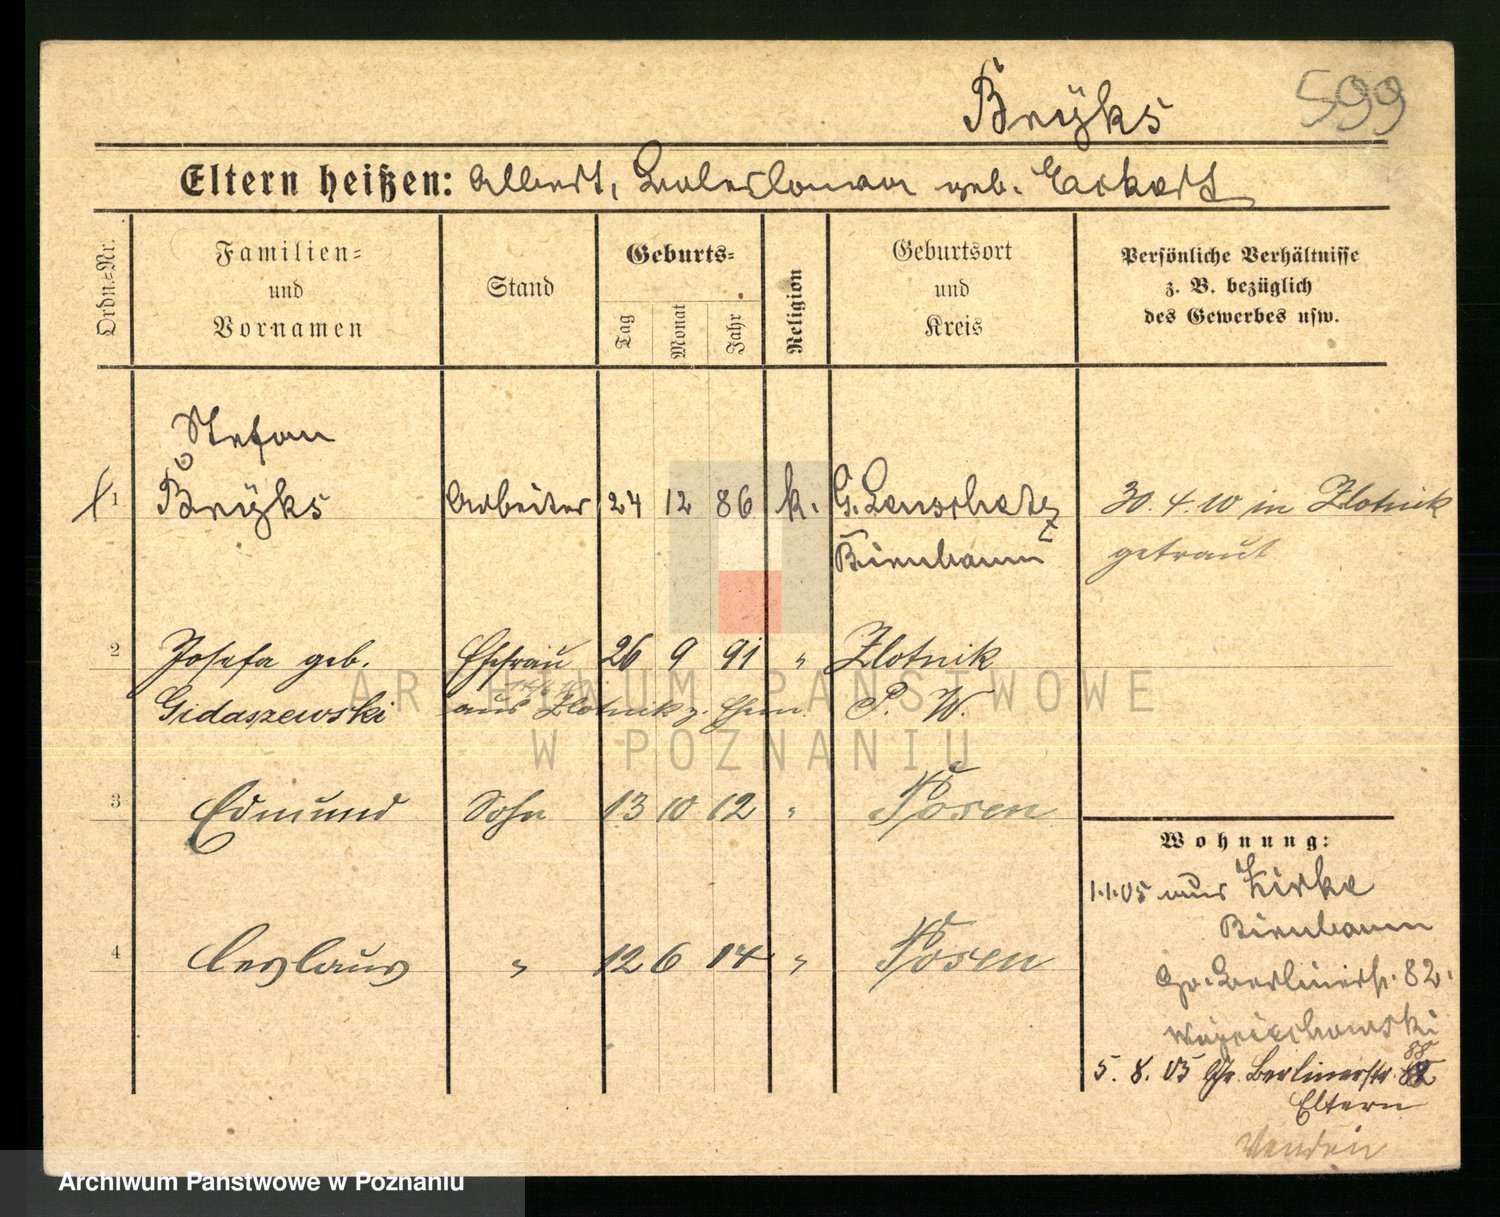 Bryks 599
Eltern heißen: Albert, geb. Eckert
Ordn.=Nr.
Familien=
und
Vornamen
Stand
Geburts=
Tag
Monat
Jahr
Religion
Geburtsort
und
Kreis
Persönliche Verhältnisse
z. B. bezüglich
des Gewerbes usw.
Stefan
1 Bryks Arbeiter 24 12 86 k. G. Lenschetz 30.4.10 in Zlotnik
Birnbaum getraut
2 Josefa geb. Ehefrau 26 9 91 " Zlotnik
Gidaszewski aus Zlotnik z. Ehem. P. W.
3 Edmund Sohn 13 10 12 " Posen
Wohnung:
1.1.05 aus Zirke
Birnbaum
4 Ceslaus " 12 6 14 " Posen
Gr. Berlinerstr. 82.
Wojciechowski
88
5. 8. 05 Gr. Berlinerstr.
Eltern
ARCHIWUM PAŃSTWOWE
W POZNANIU
Archiwum Państwowe w Poznaniu